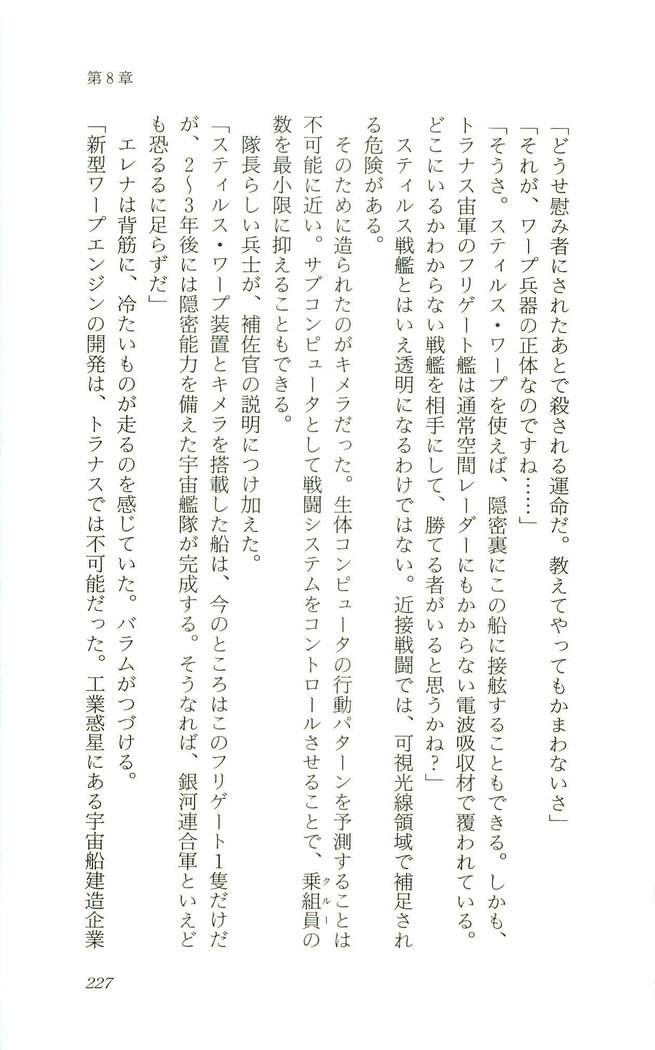 第8章
「どうせ慰み者にされたあとで殺される運命だ。教えてやってもかまわないさ」
「それが、ワープ兵器の正体なのですね……」
「そうさ。スティルス・ワープを使えば、隠密裏にこの船に接舷することもできる。しかも、
トラナス宙軍のフリゲート艦は通常空間レーダーにもかからない電波吸収材で覆われている。
どこにいるかわからない戦艦を相手にして、勝てる者がいると思うかね？」
スティルス戦艦とはいえ透明になるわけではない。近接戦闘では、可視光線領域で補足され
る危険がある。
そのために造られたのがキメラだった。生体コンピュータの行動パターンを予測することは
不可能に近い。サブコンピュータとして戦闘システムをコントロールさせることで、乗組員の
クルー
数を最小限に抑えることもできる。
隊長らしい兵士が、補佐官の説明につけ加えた。
「スティルス・ワープ装置とキメラを搭載した船は、今のところはこのフリゲート1隻だけだ
が、2〜3年後には隠密能力を備えた宇宙艦隊が完成する。そうなれば、銀河連合軍といえど
も恐るるに足らずだ」
エレナは背筋に、冷たいものが走るのを感じていた。バラムがつづける。
「新型ワープエンジンの開発は、トラナスでは不可能だった。工業惑星にある宇宙船建造企業
227